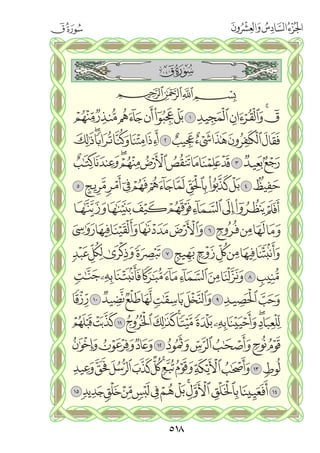 سُورَةُ قٓ
الجُزْءُ السَّادِسُ وَالعِشْرُونَ
سُورَةُ قٓ
بِسْمِ ٱللَّهِ ٱلرَّحْمَٰنِ ٱلرَّحِيمِ
قٓ ۚ وَٱلْقُرْءَانِ ٱلْمَجِيدِ ١ بَلْ عَجِبُوٓا۟ أَن جَآءَهُم مُّنذِرٌ مِّنْهُمْ
فَقَالَ ٱلْكَٰفِرُونَ هَٰذَا شَىْءٌ عَجِيبٌ ٢ أَءِذَا مِتْنَا وَكُنَّا تُرَابًا ۖ ذَٰلِكَ
رَجْعٌۢ بَعِيدٌ ٣ قَدْ عَلِمْنَا مَا تَنقُصُ ٱلْأَرْضُ مِنْهُمْ ۖ وَعِندَنَا كِتَٰبٌ
حَفِيظٌۢ ٤ بَلْ كَذَّبُوا۟ بِٱلْحَقِّ لَمَّا جَآءَهُمْ فَهُمْ فِىٓ أَمْرٍ مَّرِيجٍ ٥
أَفَلَمْ يَنظُرُوٓا۟ إِلَى ٱلسَّمَآءِ فَوْقَهُمْ كَيْفَ بَنَيْنَٰهَا وَزَيَّنَّٰهَا
وَمَا لَهَا مِن فُرُوجٍ ٦ وَٱلْأَرْضَ مَدَدْنَٰهَا وَأَلْقَيْنَا فِيهَا رَوَٰسِىَ
وَأَنۢبَتْنَا فِيهَا مِن كُلِّ زَوْجٍۭ بَهِيجٍ ٧ تَبْصِرَةً وَذِكْرَىٰ لِكُلِّ عَبْدٍ
مُّنِيبٍ ٨ وَنَزَّلْنَا مِنَ ٱلسَّمَآءِ مَآءً مُّبَٰرَكًا فَأَنۢبَتْنَا بِهِۦ جَنَّٰتٍ
وَحَبَّ ٱلْحَصِيدِ ٩ وَٱلنَّخْلَ بَاسِقَٰتٍ لَّهَا طَلْعٌ نَّضِيدٌ ١٠ رِّزْقًا
لِّلْعِبَادِ ۖ وَأَحْيَيْنَا بِهِۦ بَلْدَةً مَّيْتًا ۚ كَذَٰلِكَ ٱلْخُرُوجُ ١١ كَذَّبَتْ قَبْلَهُمْ
قَوْمُ نُوحٍ وَأَصْحَٰبُ ٱلرَّسِّ وَثَمُودُ ١٢ وَعَادٌ وَفِرْعَوْنُ وَإِخْوَٰنُ
لُوطٍ ١٣ وَأَصْحَٰبُ ٱلْأَيْكَةِ وَقَوْمُ تُبَّعٍ ۚ كُلٌّ كَذَّبَ ٱلرُّسُلَ فَحَقَّ وَعِيدِ
١٤ أَفَعَيِينَا بِٱلْخَلْقِ ٱلْأَوَّلِ ۚ بَلْ هُمْ فِى لَبْسٍ مِّنْ خَلْقٍ جَدِيدٍ ١٥
٥١٨